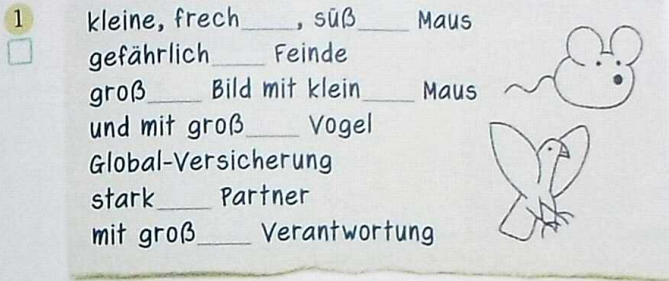 1
kleine, frech____, süß____ Maus
gefährlich____ Feinde
groß____ Bild mit klein____ Maus
und mit groß____ Vogel
Global-Versicherung
stark____ Partner
mit groß____ Verantwortung